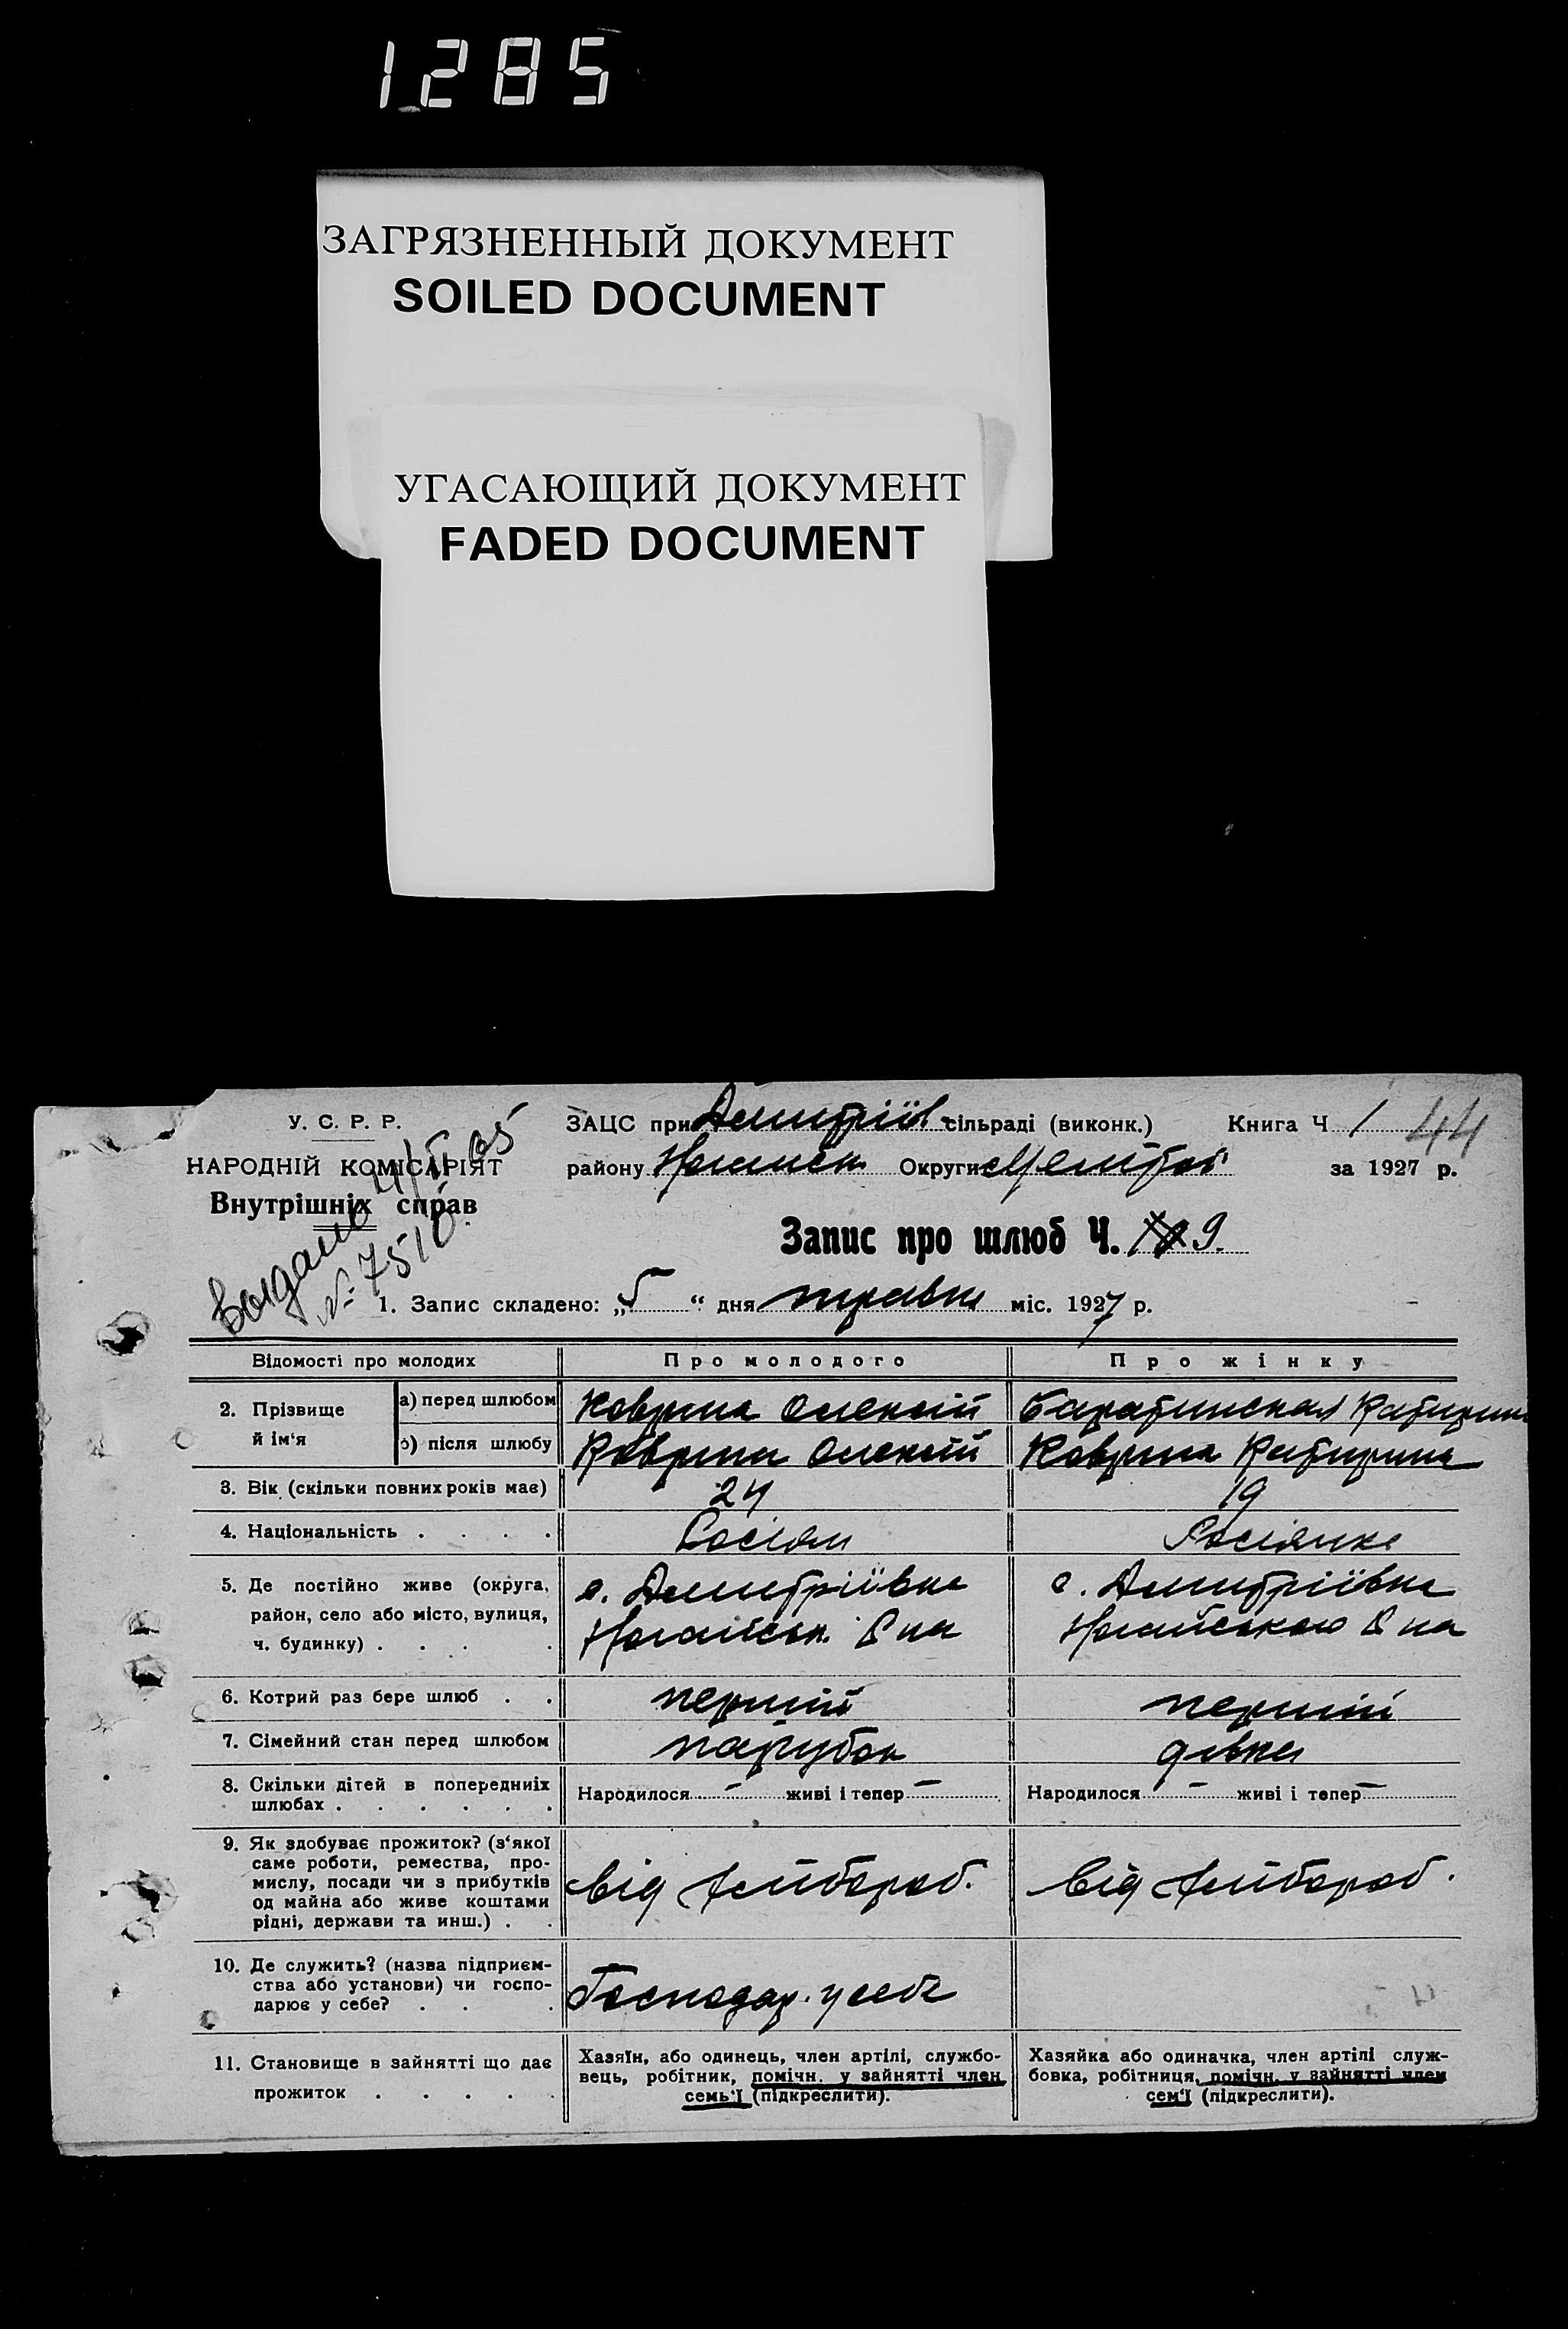 1285
ЗАГРЯЗНЕННЫЙ ДОКУМЕНТ
SOILED DOCUMENT
УГАСАЮЩИЙ ДОКУМЕНТ
FADED DOCUMENT
У. С. Р. Р.
НАРОДНІЙ КОМІСАРІЯТ
Внутрішніх справ
№ 7510
ЗАЦС при Дмитріїв сільраді (виконк.) Книга Ч 1 44
району Округи за 1927 р.
Запис про шлюб Ч. 9.
1. Запис складено: „5“ дня травня міс. 1927 р.
Відомості про молодих Про молодого Про жінку
2. Прізвище й ім‘я
а) перед шлюбом Коврига Олексій Катирина
б) після шлюбу Коврига Олексій Коврига Катирина
3. Вік (скільки повних років має) 24 19
4. Національність . . . . Росіян Росіянка
5. Де постійно живе (округа, с. Дмитріївка с. Дмитріївка
район, село або місто, вулиця, Ногайськ. Р на Ногайського Р на
ч. будинку) . . . .
6. Котрий раз бере шлюб . . перший перший
7. Сімейний стан перед шлюбом парубок дівка
8. Скільки дітей в попередниіх Народилося — живі і тепер — Народилося — живі і тепер —
шлюбах . . . . . .
9. Як здобуває прожиток? (з‘якої
саме роботи, ремества, про-
мислу, посади чи з прибутків від хлібороб. від хлібороб.
од майна або живе коштами
рідні, держави та инш.) . .
10. Де служить? (назва підприєм-
ства або установи) чи госпо- Господар. у себе
дарює у себе? . . .
11. Становище в зайнятті що дає
прожиток . . . . .
Хазяїн, або одинець, член артілі, службо-
вець, робітник, помічн. у зайнятті член
семь‘ї (підкреслити).
Хазяйка або одиначка, член артілі служ-
бовка, робітниця, помічн. у зайнятті член
сем‘ї (підкреслити).